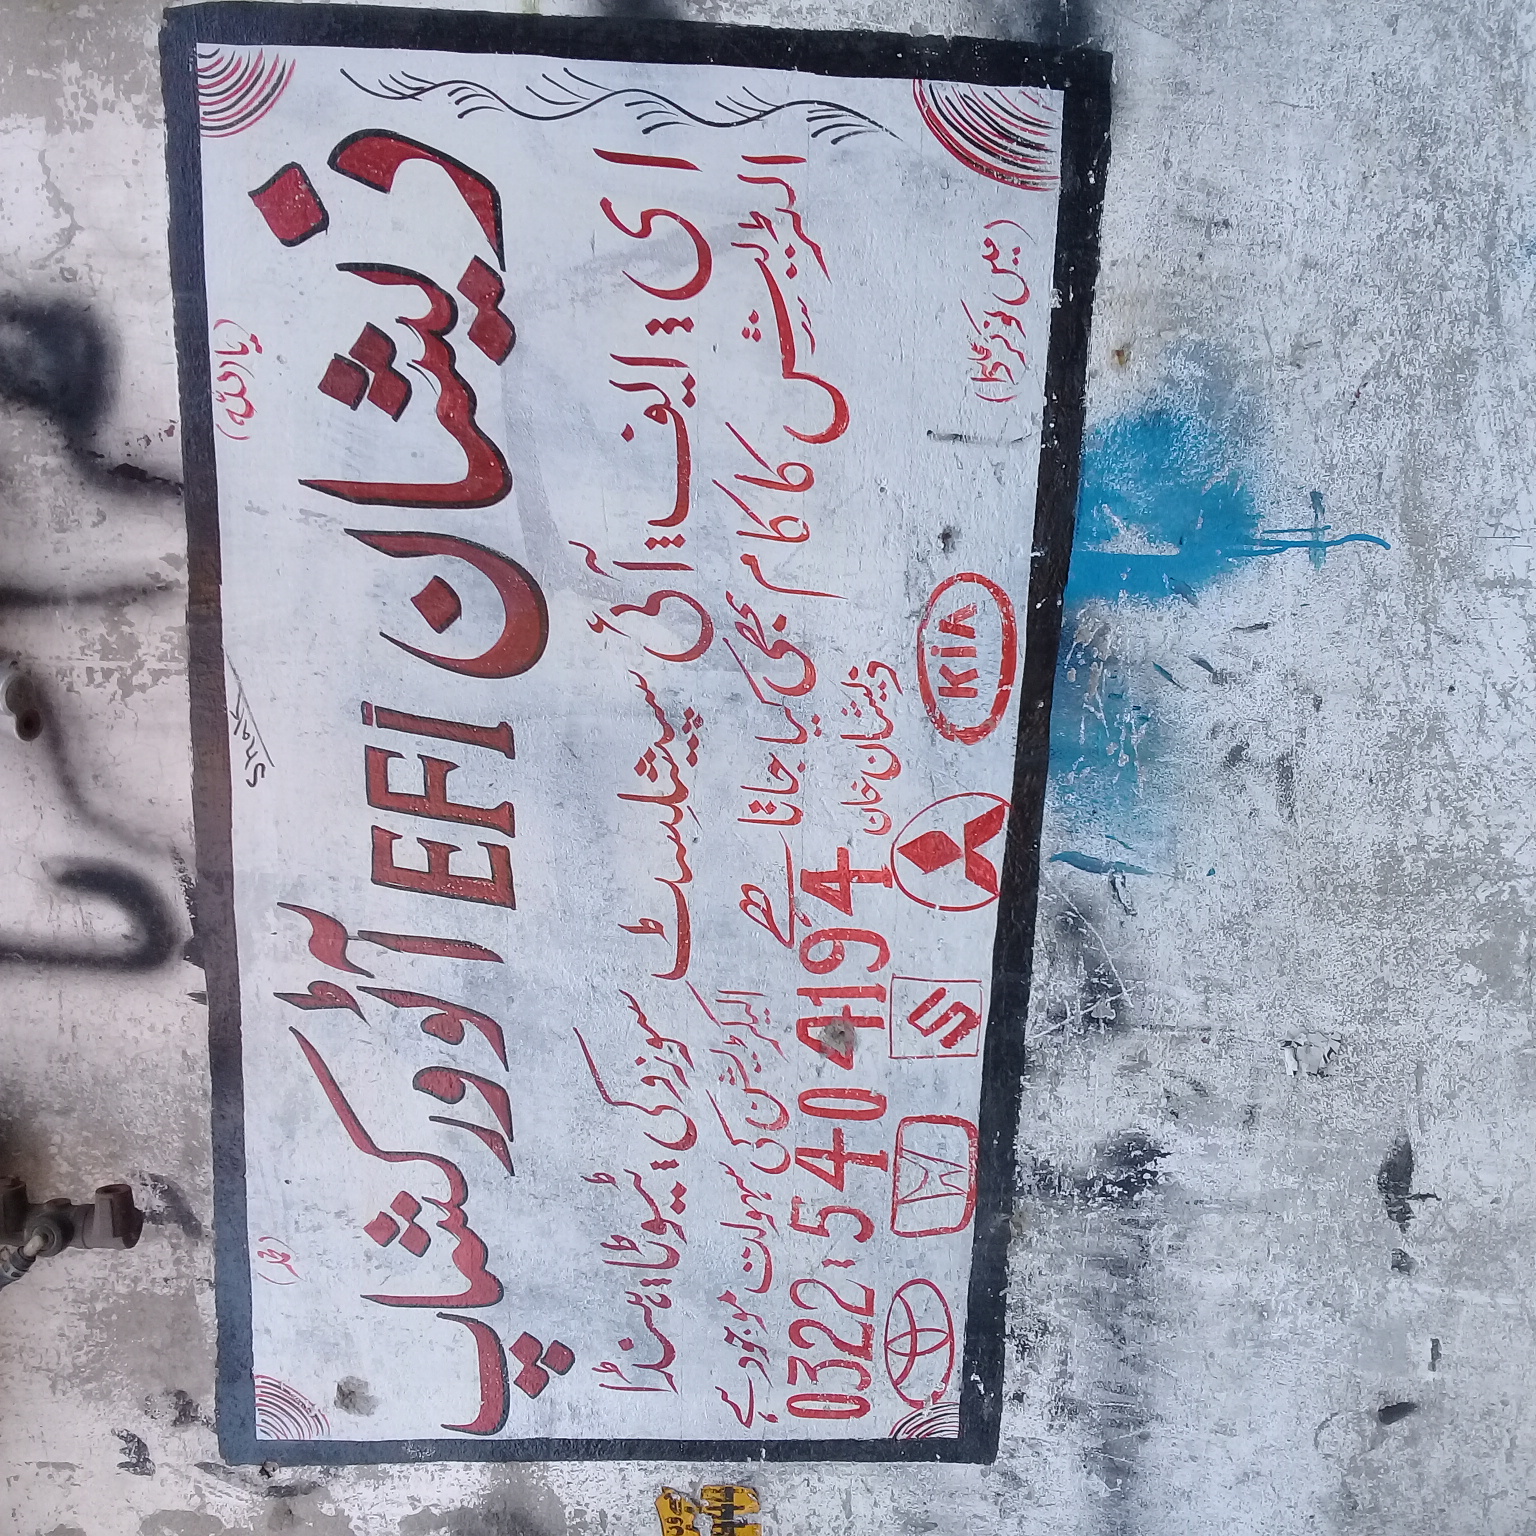 (یا اللہ) (محمد)
ذیشان EFI آٹو ورکشاپ
Shak
ای ؛ ایف ؛ آئی سپیشلسٹ سوزوکی ؛ ٹیوٹا ؛ ہنڈا
الٹریشن کا کام بھی کیا جاتا ہے الیکٹریشن کی سہولت موجود ہے
ذیشان خان
0322:5404194
(میں نوکر کا)
KIA